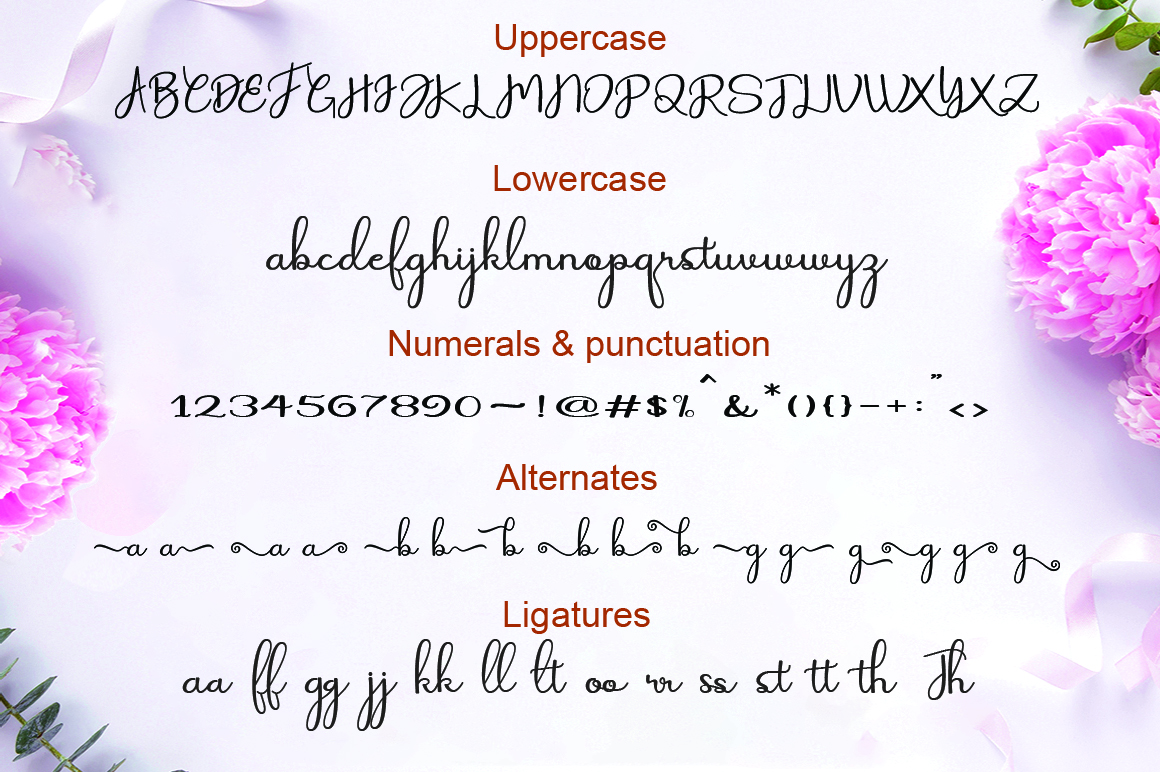 Uppercase
ABCDEFGHIJKLMNOPQRSTUVWXYXZ
Lowercase
abcdefghijklmnopqrstuvwwyz
Numerals & punctuation
1234567890~!@#$%^&*(){}-+:”<>
Alternates
a a a a b b b b b b g g g g g g
Ligatures
aa ff gg jj kk ll lt oo rr ss st tt th Th